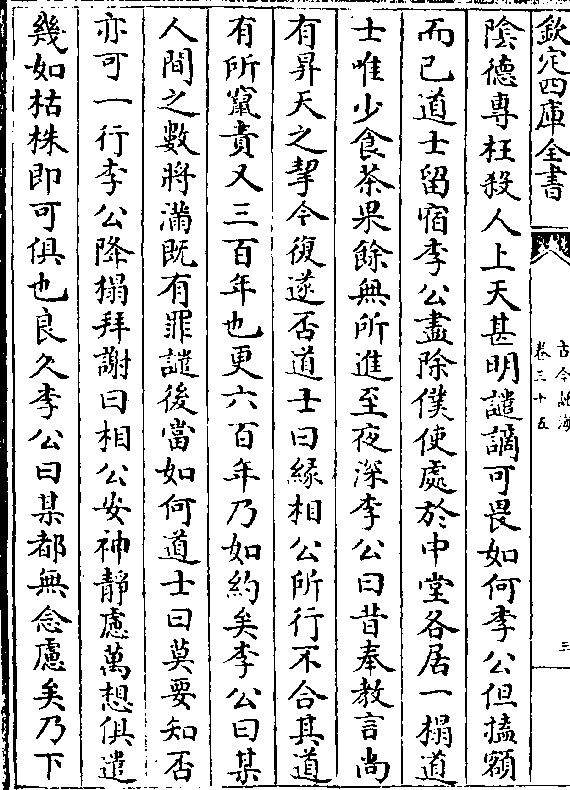 欽定四庫全書
古今說海
卷三十五
三
陰德専枉殺人上天甚明譴謫可畏如何李公但搕額
而已道士留宿李公盡除僕使處於中堂各居一榻道
士唯少食茶果餘無所進至夜深李公曰昔奉教言尚
有昇天之挈今復遂否道士曰緣相公所行不合其道
有所竄責又三百年也更六百年乃如約矣李公曰某
人間之數將滿既有罪譴後當如何道士曰莫要知否
亦可一行李公降榻拜謝曰相公安神靜慮萬想俱遣
幾如枯株即可俱也良久李公曰某都無念慮矣乃下